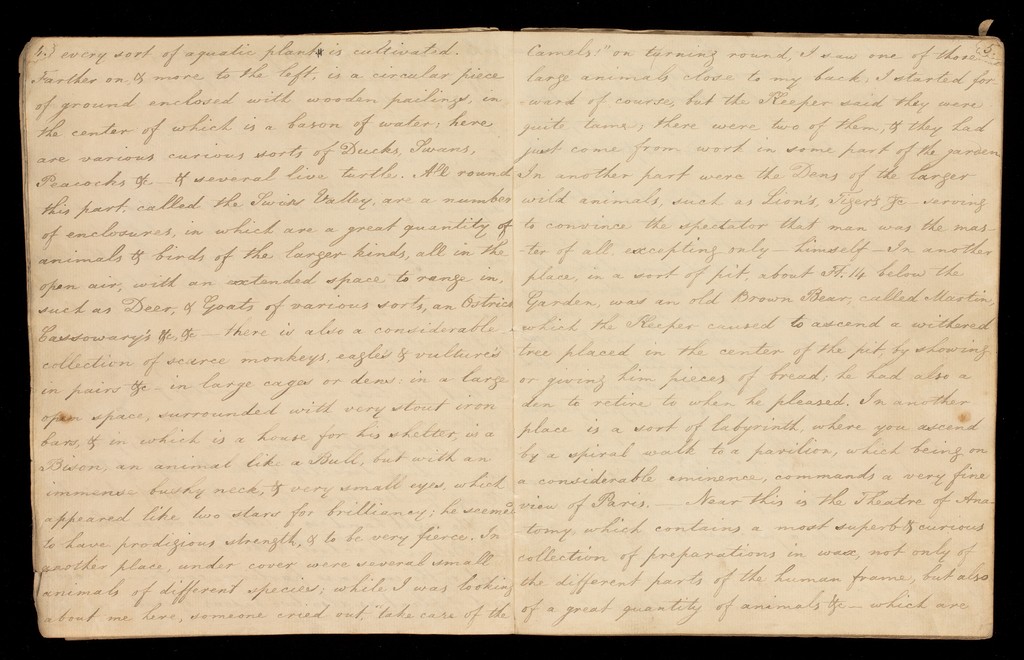 4.
every sort of aquatic plant is cultivated.
Farther on, & more to the left, is a circular piece
of ground enclosed with wooden pailings, in
the center of which is a bason of water: here
are various curious sorts of Ducks, Swans,
Peacocks &c — & several live turtle. All round
this part, called the Swiss Valley, are a number
of enclosures, in which are a great quantity of
animals & birds of the larger kinds, all in the
open air, with an extended space to range in,
such as Deer, & Goats of various sorts, an Ostrich
Cassowary's &c, &c — there is also a considerable
collection of scarce monkeys, eagles & vultures
in pairs &c — in large cages or dens: in a large
open space, surrounded with very stout iron
bars, & in which is a house for his shelter, is a
Bison, an animal like a Bull, but with an
immense bushy neck, & very small eyes, which
appeared like two stars for brilliancy; he seem'd
to have prodigious strength, & to be very fierce. In
another place, under cover were several small
animals of different species; while I was looking
about me here, someone cried out, "take care of the
5.
Camels!" on turning round, I saw one of those
large animals close to my back; I started for-
ward of course, but the Keeper said they were
quite tame; there were two of them, & they had
just come from work in some part of the garden
In another part were the Dens of the larger
wild animals, such as Lion's, Tiger's &c — serving
to convince the spectator that man was the mas-
ter of all, excepting only — himself — In another
place, in a sort of pit, about Ft. 14 below the
Garden, was an old Brown Bear, called Martin,
which the Keeper caused to ascend a withered
tree placed in the center of the pit, by showing
or giving him pieces of bread; he had also a
den to retire to when he pleased. In another
place is a sort of labyrinth, where you ascend
by a spiral walk to a pavilion, which being on
a considerable eminence, commands a very fine
view of Paris. — Near this is the Theatre of Ana-
tomy, which contains a most superb & curious
collection of preparations in wax, not only of
the different parts of the human frame, but also
of a great quantity of animals &c — which are